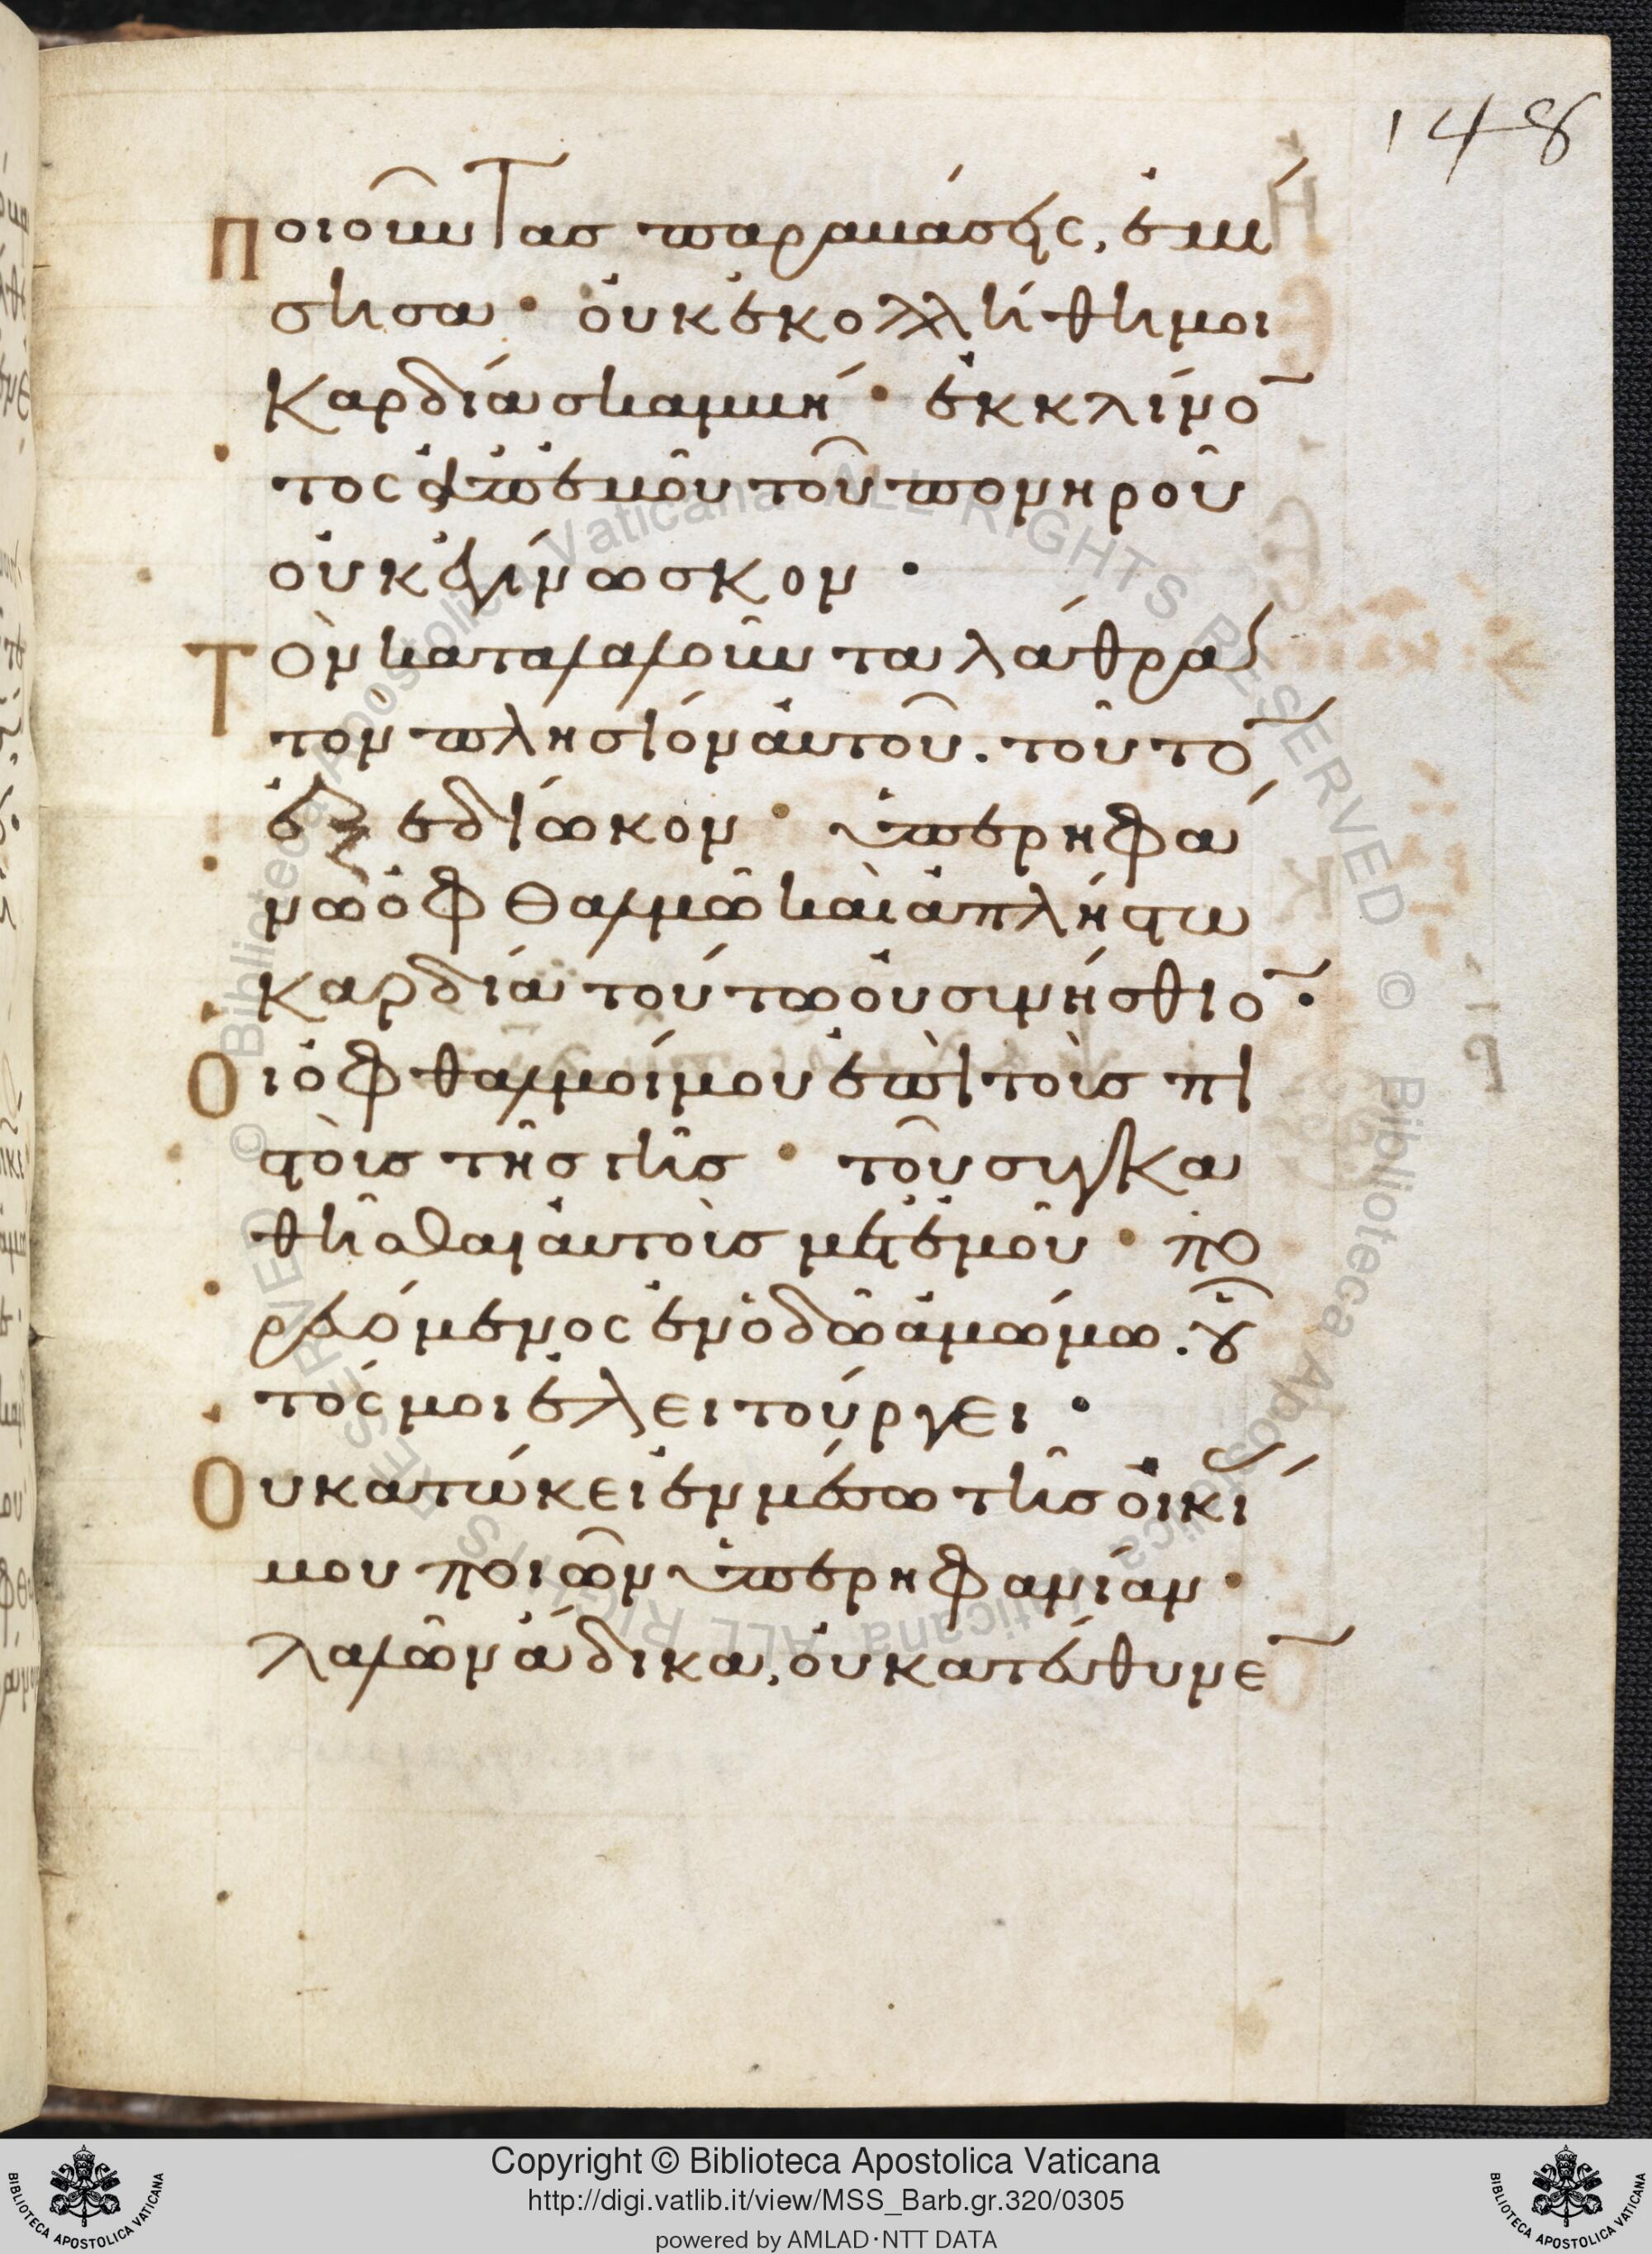 148
Ποιοῦντας παραβάσεις, ἐμί
σησα · οὐκ ἐκολλήθη μοι
καρδία σκαμβή · ἐκκλίνο
τος ἀπ᾽ ἐμοῦ τοῦ πονηροῦ
οὐκ ἐγίνωσκον ·
Τὸν καταλαλοῦντα λάθρα
τὸν πλησίον αὐτοῦ. τοῦτο
ἐξεδίωκον · ὑπερηφά
νω ὀφθαλμῶ καὶ ἀπλήστω
καρδία τούτω οὐ συνήσθιο ·
Οἱ ὀφθαλμοί μου ἐπὶ τοὺς πι
στοὺς τῆς γῆς · τοῦ συγκα
θῆσθαι αὐτοὺς μετ᾽ ἐμοῦ · πο
ρευόμενος ἐν ὁδῶ ἀμώμω. οὗ
τός μοι ἐλειτούργει ·
Οὐ κατώκει ἐν μέσω τῆς οἰκί
μου ποιῶν ὑπερηφανίαν ·
λαλῶν ἄδικα, οὐ κατεύθυνε
Copyright © Biblioteca Apostolica Vaticana
http://digi.vatlib.it/view/MSS_Barb.gr.320/0305
powered by AMLAD·NTT DATA
BIBLIOTECA APOSTOLICA VATICANA
BIBLIOTECA APOSTOLICA VATICANA